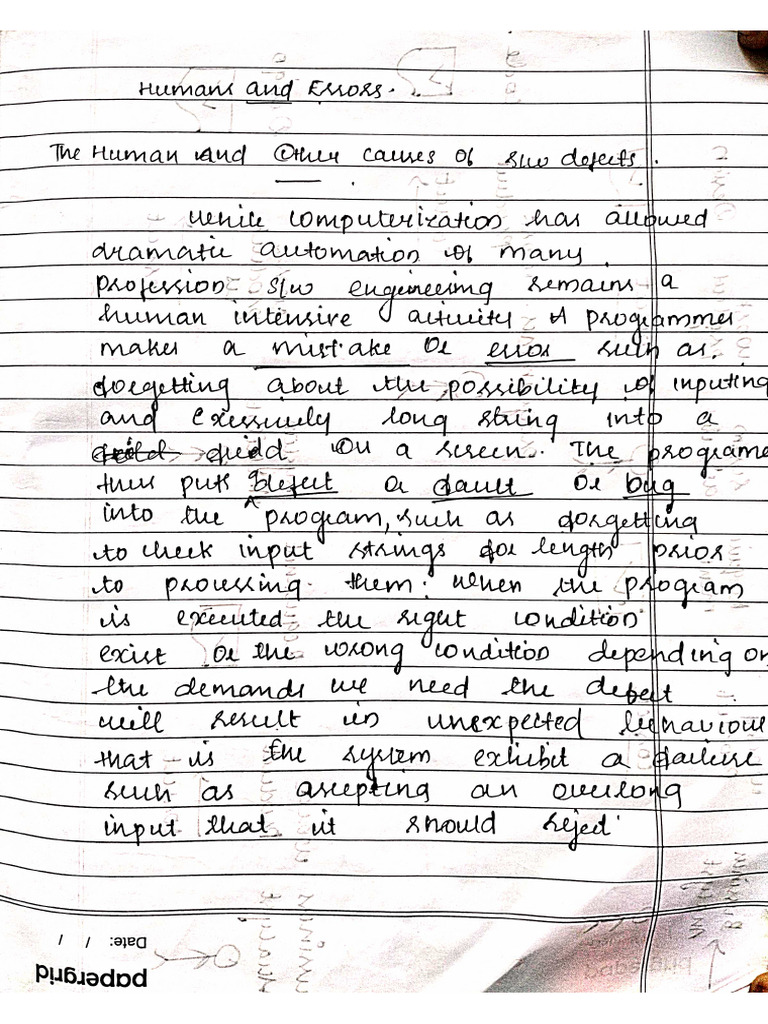 Humans and Errors.
The Human and Other causes of s/w defects.
While computerization has allowed
dramatic automation of many
profession s/w engineering remains a
human intensive activity A programmer
makes a mistake or error such as
forgetting about the possibility of inputing
and exessively long string into a
field on a screen. The programe
then puts a defect or fault or bug
into the program, such as forgetting
to check input strings for length prior
to processing them. When the program
is executed the right condition
exist or the wrong condition depending on
the demands we need the defect
will result in unexpected behaviour
that is the system exhibit a failure
such as accepting an overlong
input that it should reject
Date: / /
papergrid